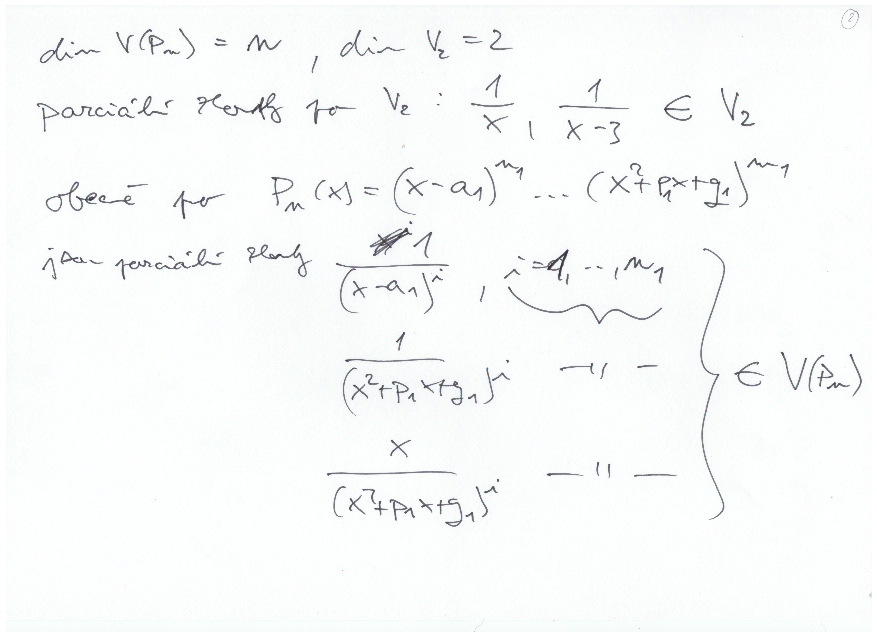 2
dim V(Pₙ) = n , dim V₂ = 2
parciální zlomky pro V₂ : 1/x , 1/(x-3) ∈ V₂
obecně pro Pₙ(x) = (x-a₁)^n₁ ... (x²+p₁x+q₁)^m₁
jsou parciální zlomky 1/(x-a₁)^i , i=1, ..., n₁
1/(x²+p₁x+q₁)^i —〃— } ∈ V(Pₙ)
x/(x²+p₁x+q₁)^i —〃—